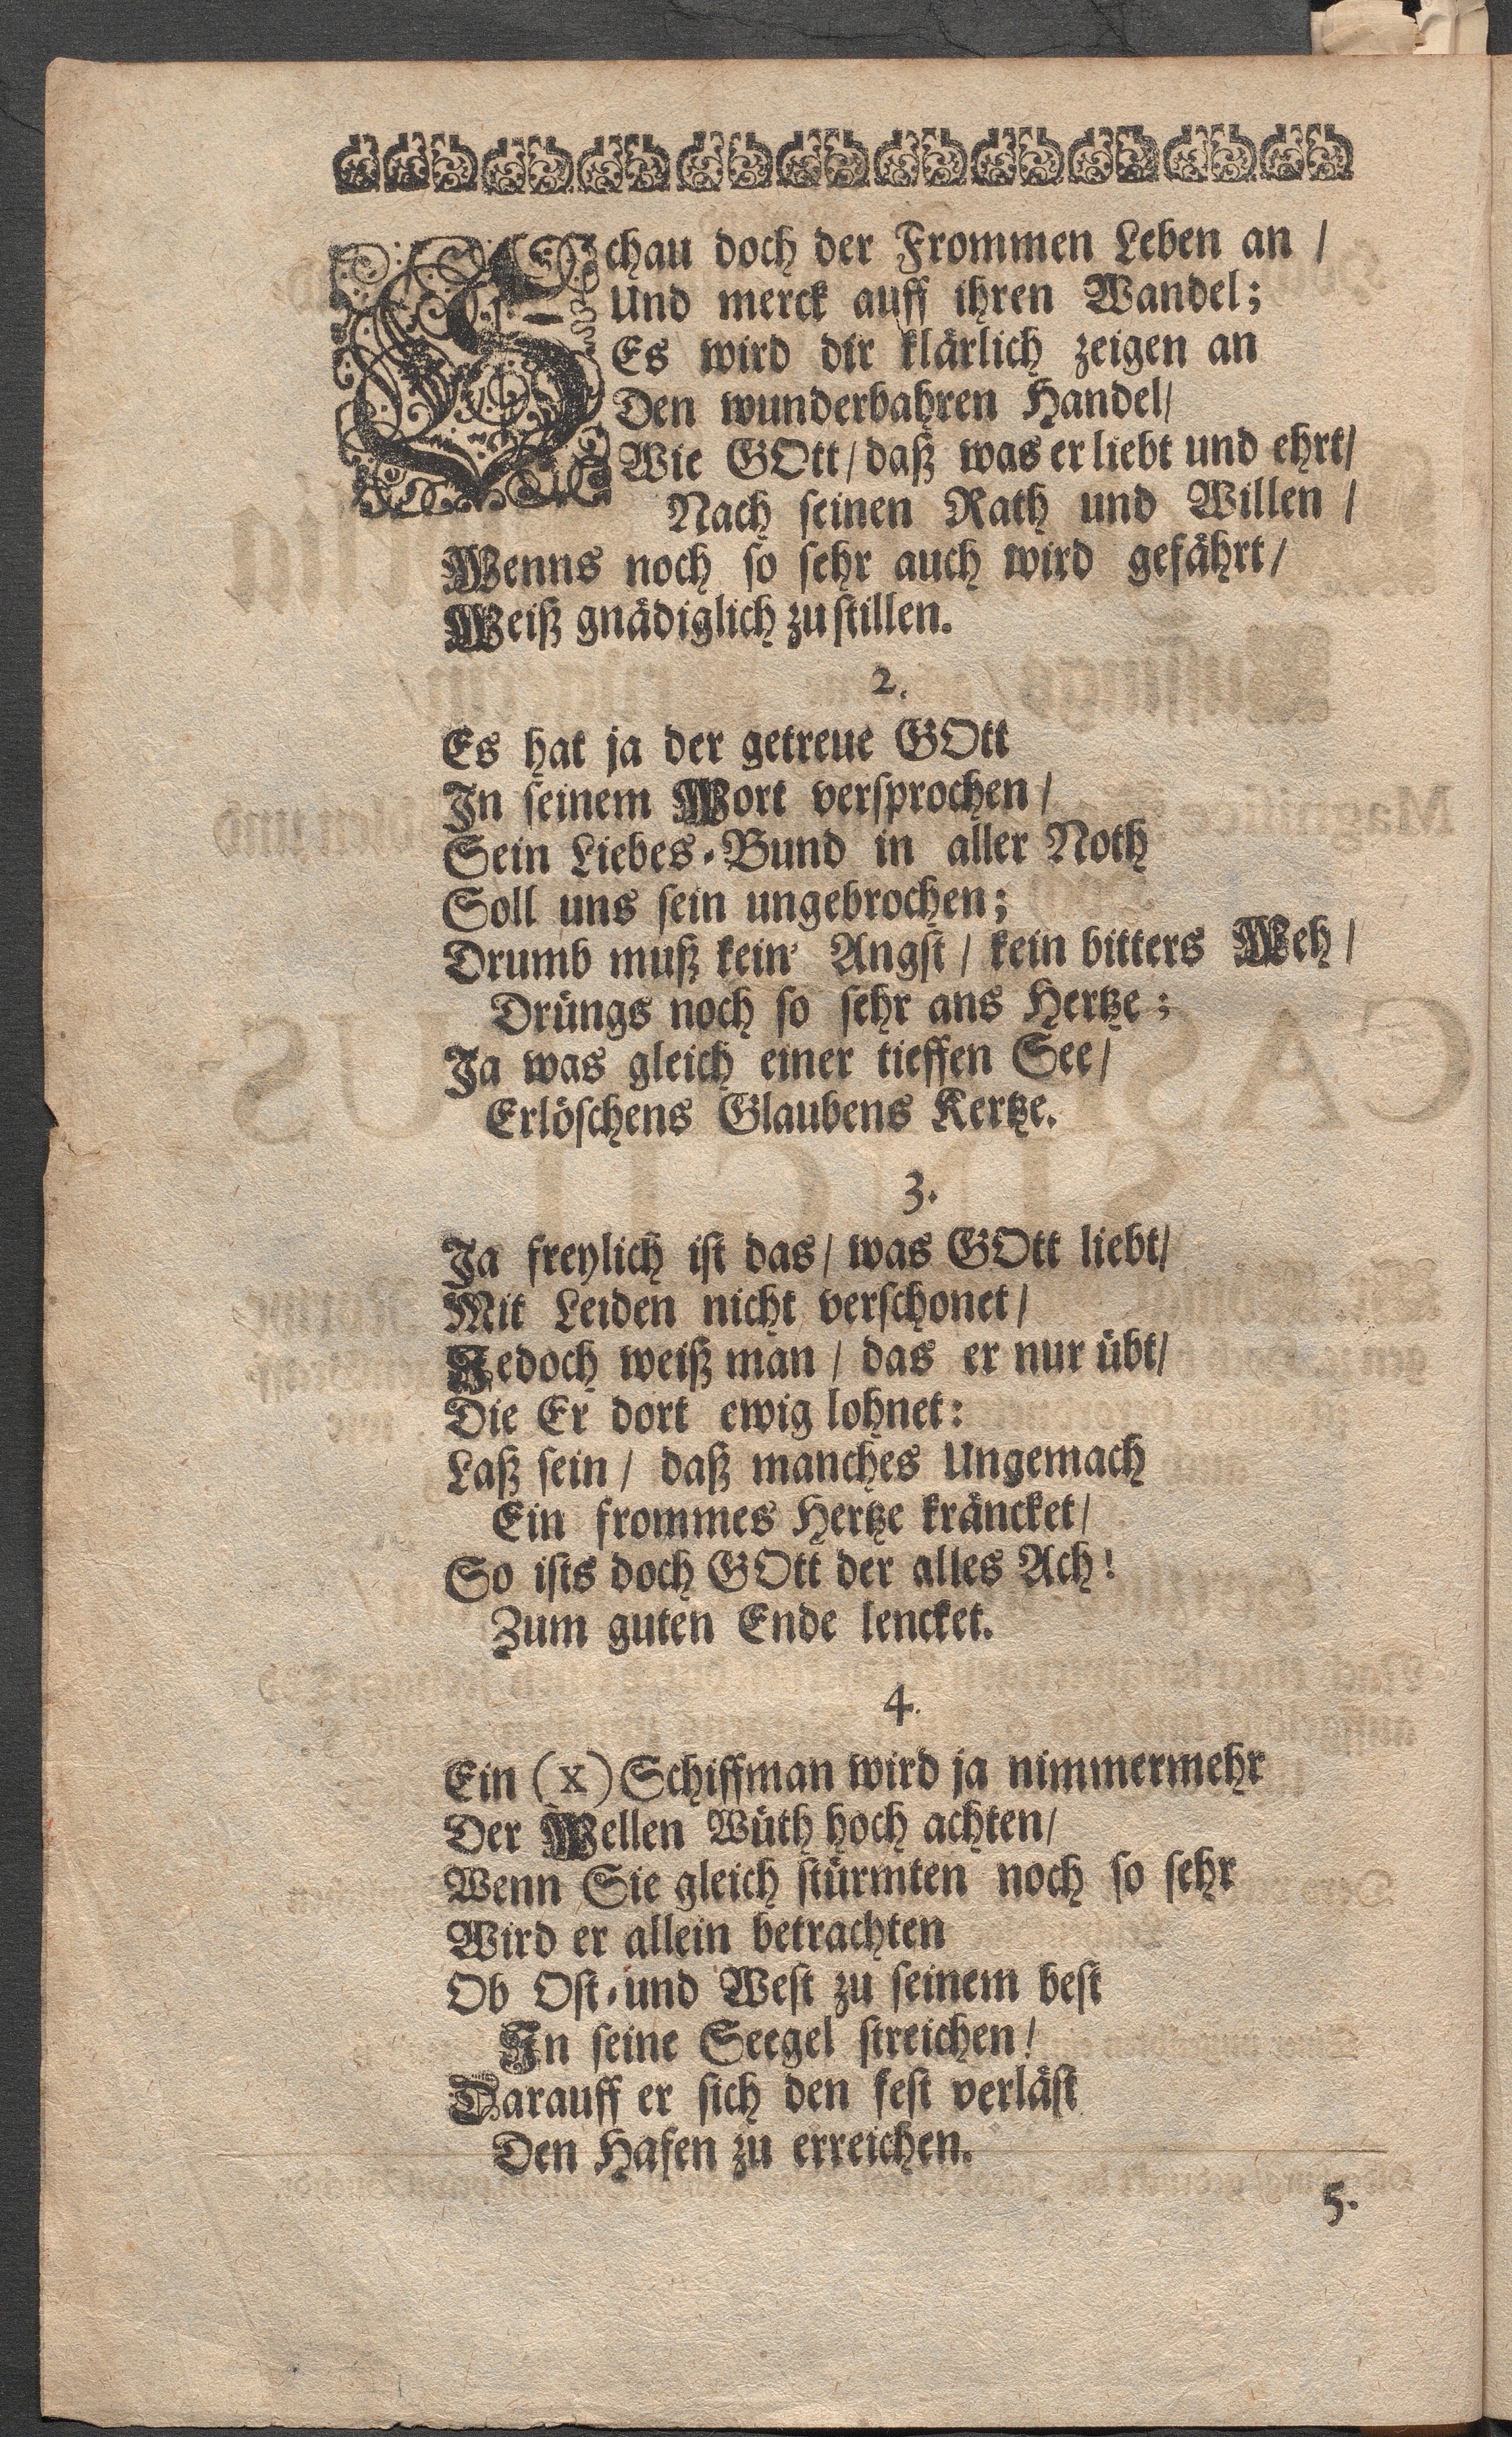 Schau doch der Frommen Leben an /
Und merck auff ihren Wandel;
Es wird dir klärlich zeigen an
Den wunderbahren Handel/
Wie GOtt/ daß was er liebt und ehrt/
Nach seinen Rath und Willen /
Wenns noch so sehr auch wird gefährt/
Weiß gnädiglich zu stillen.
2.
Es hat ja der getreue GOtt
In seinem Wort versprochen /
Sein Liebes-Bund in aller Noth
Soll uns sein ungebrochen;
Drumb muß kein' Angst / kein bitters Weh /
Drüngs noch so sehr ans Hertze;
Ja was gleich einer tieffen See/
Erlöschens Glaubens Kertze.
3.
Ja freylich ist das/ was GOtt liebt/
Mit Leiden nicht verschonet/
Jedoch weiß man / das er nur übt/
Die Er dort ewig lohnet:
Laß sein / daß manches Ungemach
Ein frommes Hertze kräncket/
So ists doch GOtt der alles Ach!
Zum guten Ende lencket.
4.
Ein (X) Schiffman wird ja nimmermehr
Der Wellen Wüth hoch achten/
Wenn Sie gleich stürmten noch so sehr
Wird er allein betrachten
Ob Ost-und West zu seinem best
In seine Seegel streichen!
Darauff er sich den fest verläst
Den Hafen zu erreichen.
5.